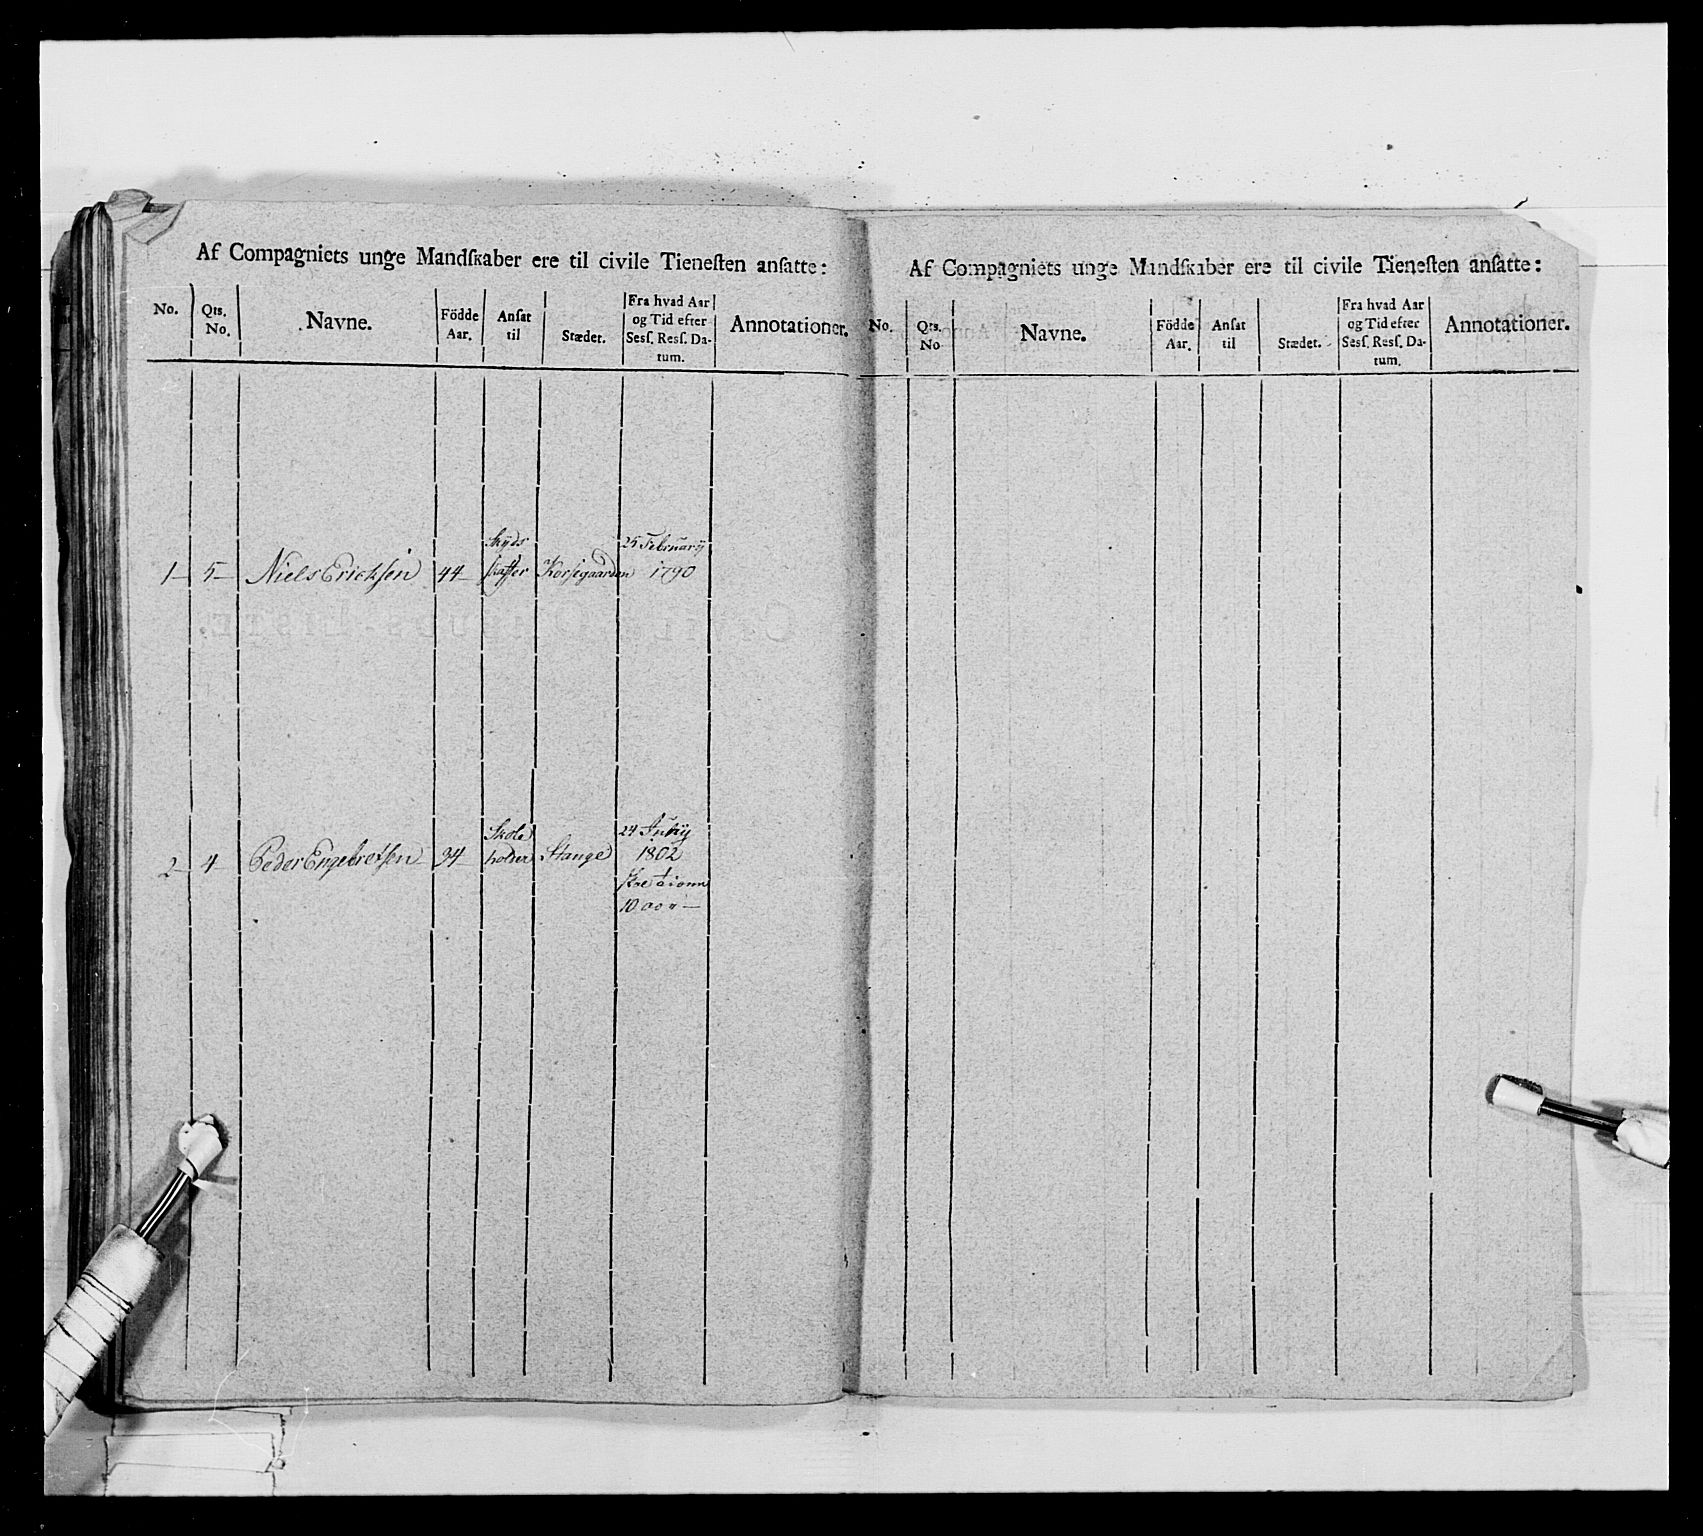 Af Compagniets unge Mandſkaber ere til civile Tieneſten anſatte:
No.
Qts. No.
Navne.
Födde Aar.
Anſat til
Stædet.
Fra hvad Aar
og Tid efter
Sesſ. Resſ. Da-
tum.
Annotationer.
Skyds 25 February
1 — 5 — Niels Ericksen 44 — skaffer Korsegaarden 1790
Skole 24 July
2 — 4 Peder Engebretsen 34 — holder Stange 1802
Af Compagniets unge Mandſkaber ere til civile Tieneſten anſatte:
No.
Qts. No
Navne.
Födde Aar.
Anſat til
Stædet.
Fra hvad Aar
og Tid efter
Sesſ. Resſ. Da-
tum.
Annotationer.